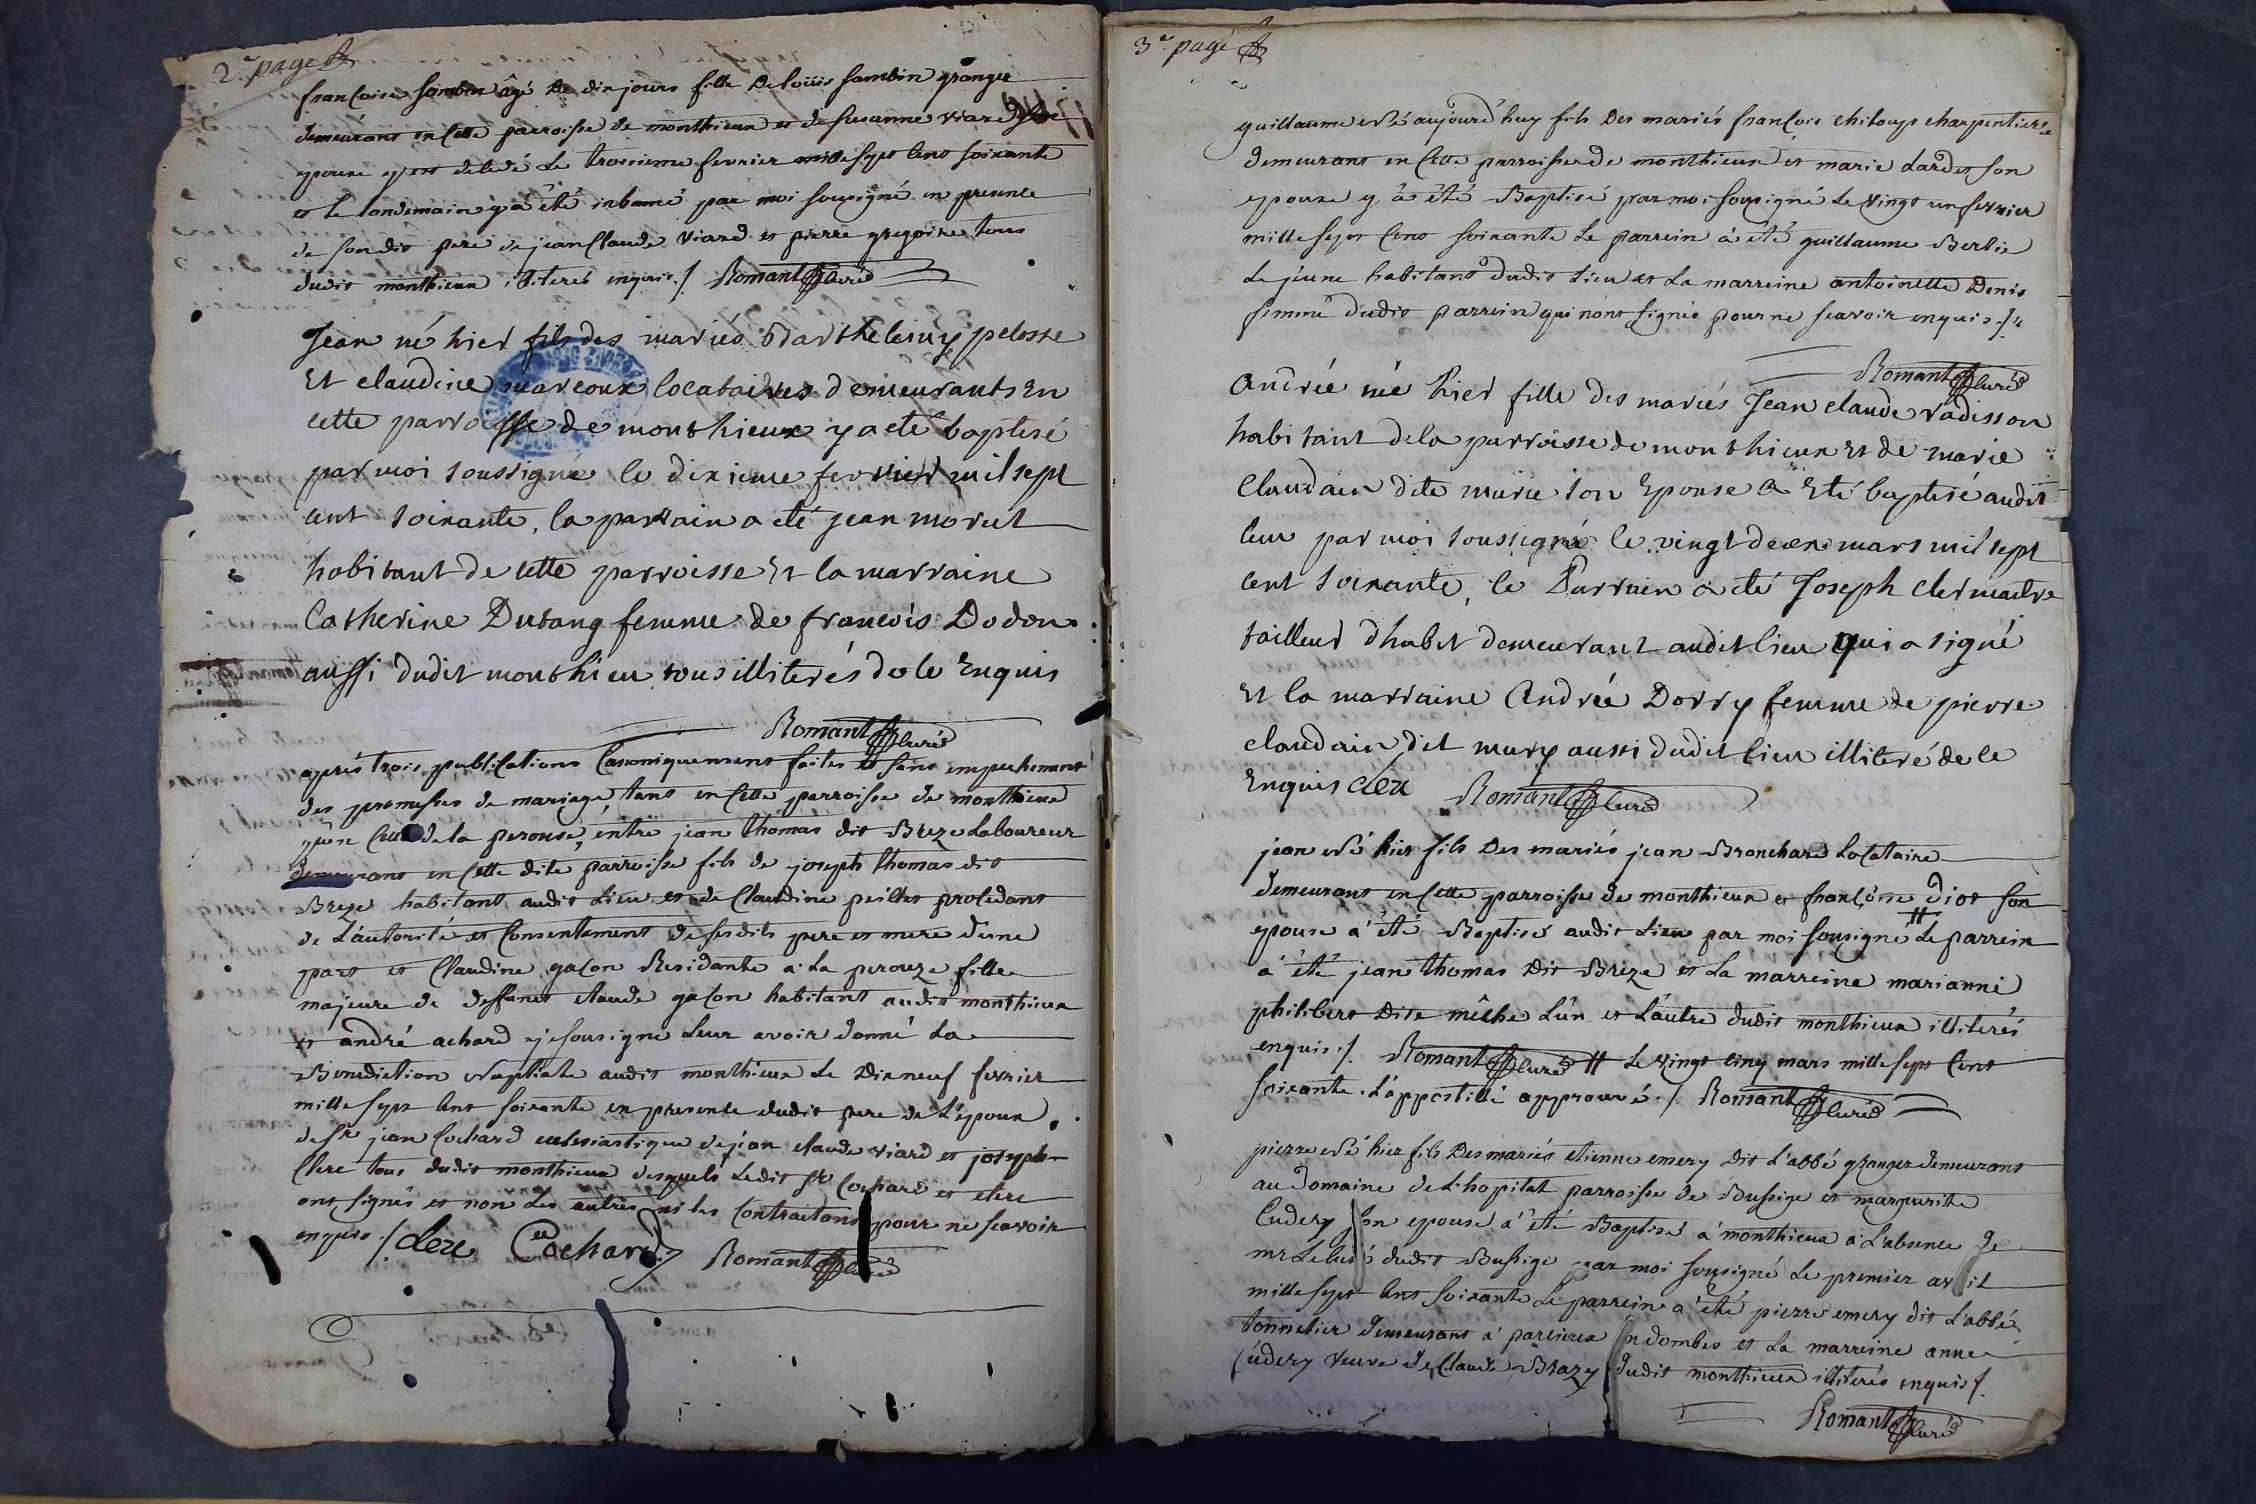 2e page
francoise sambin âgé de dix jours fille de loüis sambin granger
demeurant en cette parroisse de monthieux et de susanne viard son
epouse y est decedé le troisieme fevrier mille sept cent soixante
et le landemain y a été inhumé par moi sousigné en presence
de son dit pere de jean claude viard et pierre gregoire tous
dudit monthieux illiterés enquis ./. Romant curé
Jean né hier fils des mariés Barthelemy pelosse
Et claudine marcoux locataires demeurants En
cette parroisse de monthieux y a eté baptisé
par moi soussigné le dixieme fevrier mil sept
cent soixante, la parrain a eté jean morel
habitant de cette parroisse Et la marraine
Catherine Dutang femme de francois Dodon
aussi dudit monthieu tous illiterés de le Enquis
Romant curé
aprés trois publications Canoniquement faites et sans empechement
des promesses de mariage, tant en cette parroisse de monthieux
qu'en celle de la perouse, entre jean thomas dit Breze Laboureur
demeurant en cette dite parroisse fils de joseph thomas dit
Breze habitant audit Lieu et de Claudine peillet procedant
de L'autorité et Consentement de sesdits pere et mere d'une
part et Claudine gaçon Residante a La perouze fille
majeure de deffunct claude gaçon habitant audit monthieux
et andré achard je sousigne Leur avoir donné La
Benediction Nuptiale audit monthieux Le Dixneuf fevrier
mille sept cent soixante en presence dudit pere de L'epoux
de sr jean Cochard ecclesiastique de jean claude viard et joseph
Clerc tous dudit monthieux desquels Ledit sr Cochard et clerc
ont signés et non Les autres ni les Contractans pour ne scavoir
enquis ./. Clerc Cochard Romant curé
3e page
guillaume né aujourd'huy fils des mariés francois chiloup charpentier
demeurant en cette parroisse de monthieux et marie Lardet son
epouse y a été Baptisé par moi sousigné Le vingt un fevrier
mille sept cent soixante Le parrein a été guillaume Berlie
Le jeune habitant dudit Lieu et La marreine antoinette Denis
femme dudit parrein qui n'ont signés pour ne scavoir enquis ./.
Romant curé
Andrée née hier fille des mariés Jean claude radisson
habitant de la parroisse de monthieux Et de marie
Claudain dite murie son Epouse a Eté baptisé audit
lieu par moi soussigné le vingt deux mars mil sept
cent soixante, le Parrain a eté Joseph cler maitre
tailleur d'habit demeurant audit lieu qui a signé
Et la marraine Andrée Dorry femme de pierre
claudain dit mury aussi dudit lieu illiteré de le
Enquis Clerc Romant curé
jean Né hier fils des mariés jean Bronchard Locataire
demeurant en cette parroisse de monthieux et francoise diot son
epouse a été Baptisé audit Lieu par moi sousigné # Le parrein
a été jean thomas dit Breze et La marreine marianne
philibert dite mêche L'un et L'autre dudit monthieux illiterés
enquis ./. Romant curé # Le vingt cinq mars mille sept cent
soixante . L'appostillé approuvé ./. Romant curé
pierre Né hier fils des mariés etienne emery dit L'abbé granger demeurant
au Domaine de L'hopital parroisse de Bussige et marguerite
Cudery son epouse a été Baptisé a monthieux a L'absence de
mr Le curé dudit Bussige par moi sousigné Le premier avril
mille sept cent soixante Le parrein a été pierre emery dit L'abbé
tonnelier demeurant a parcieux en dombes et La marreine anne
Cudery veuve de Claude Brazy dudit monthieux illiterés enquis ./.
Romant curé